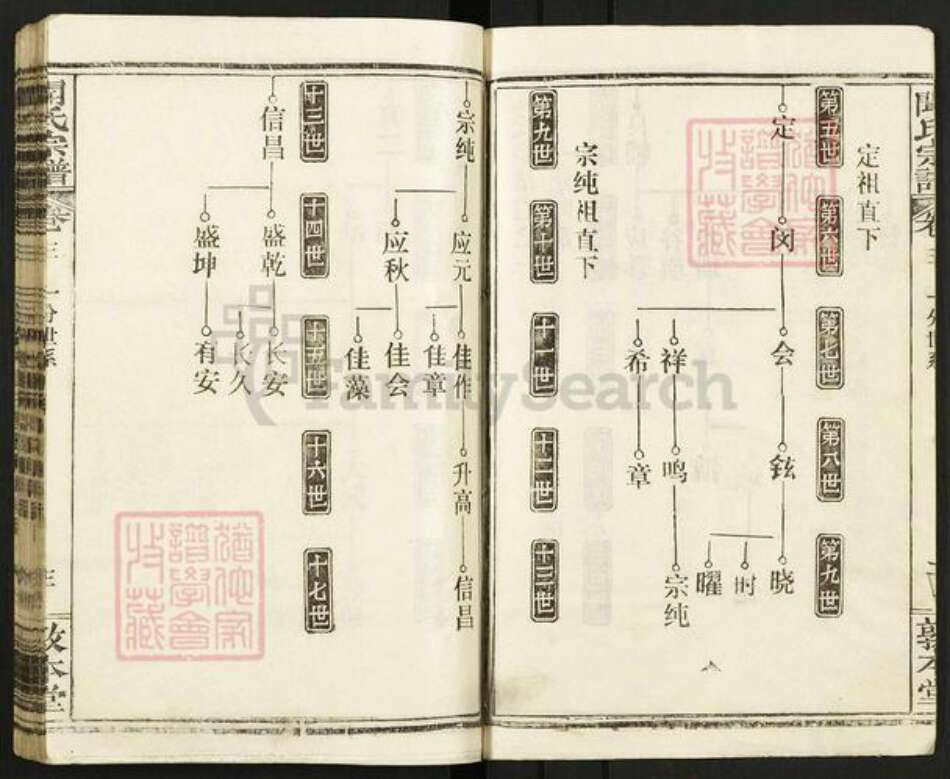 定祖直下
第五世
第六世
第七世
第八世
第九世
定
闵
会
铉
晓
时
曜
祥
鸣
宗纯
希
章
宗纯祖直下
第九世
第十世
十一世
十二世
十三世
宗纯
应元
佳作
升高
信昌
佳章
应秋
佳会
佳藻
十三世
十四世
十五世
十六世
十七世
信昌
盛乾
长安
长久
盛坤
有安
氏宗譜
卷三
敦本堂
譜學會
收藏
FamilySearch